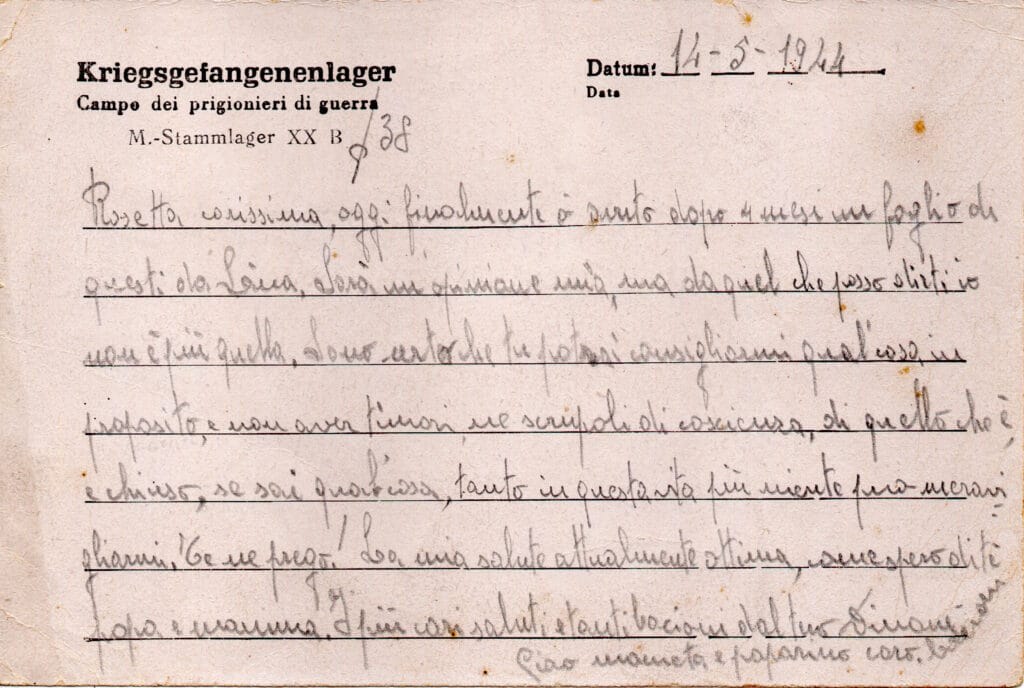 Kriegsgefangenenlager
Campo dei prigionieri di guerra
M.-Stammlager XX B /38
Datum: 14-5-1944
Data
Rosetta carissima, oggi finalmente ò avuto dopo 4 mesi un foglio di
questi da Sarà un opinione mia, ma da quel che posso dirti io
non è più quella. Sono certo che tu potrai consigliarmi qual'cosa in
proposito, e non aver timori, ne scrupoli di coscienza, di quello che è,
e chiuso, se sai qual'cosa, tanto in questa vita più niente può meravi
gliarmi. Te ne prego! La mia salute attualmente ottima, come spero di tè
papa e mamma. I più cari saluti e tanti bacioni dal tuo
Ciao e paparino caro. bacioni